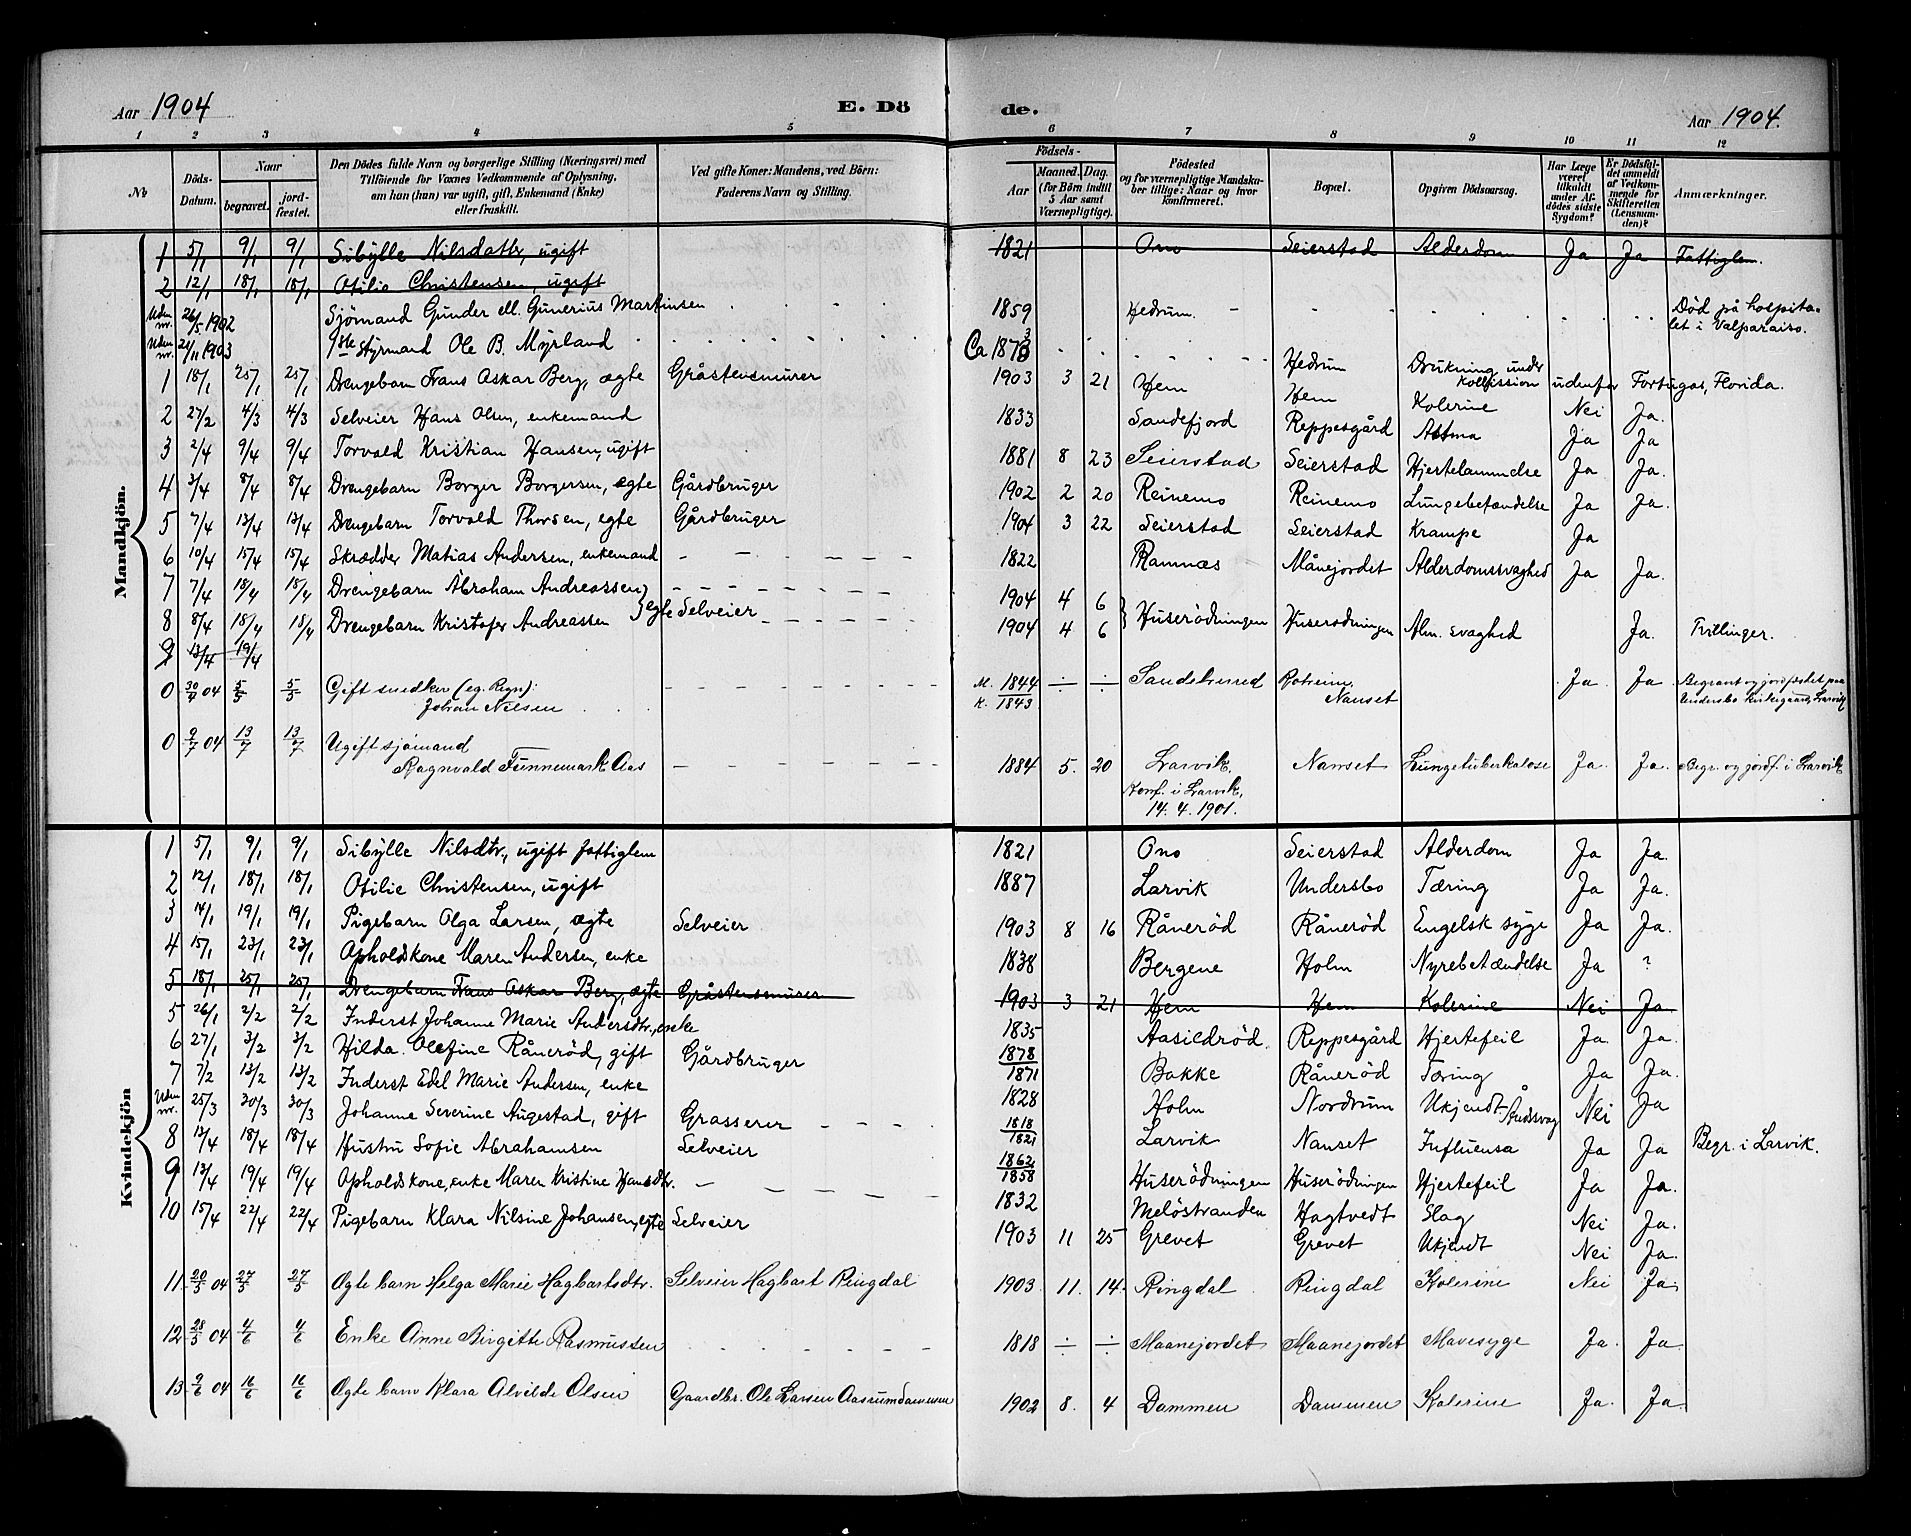 Aar 1904 E. Dö de. Aar 1904.
1 2 3 4 5 6 7 8 9 10 11 12
№ Döds-Datum. Naar begravet. jord-fæstet. Den Dödes fulde Navn og borgerlige Stilling (Næringsvei) med Tilföiende for Voxnes Vedkommende af Oplysning, om han (hun) var ugift, gift, Enkemand (Enke) eller fraskilt. Ved gifte Koner: Mandens, ved Börn: Faderens Navn og Stilling. Födsels- Aar Maaned. Dag. (for Börn indtil 5 Aar samt Værnepligtige). Födested og for værnepligtige Mandskaber tillige: Naar og hvor konfirmeret. Bopæl. Opgiven Dödsaarsag. Har Læge været tilkaldt under Afdödes sidste Sygdom? Er Dödsfaldet anmeldt af Vedkommende for Skifteretten (Lensmanden)? Anmærkninger.
Mandkjön.
1 5/1 9/1 9/1 Sibylle Nilsdatr, ugift 1821 Ono Seierstad Alderdom Ja Ja Fattiglem.
2 12/1 18/1 18/1 Otilie Christensen, ugift
Uden nr. 26/5 1902 Sjömand Gunder ell. Gunerius Martinsen 1859 Hedrum. Död på hospita-let i Valparaiso.
Uden nr. 21/11 1903 1ste Styrmand Ole B. Myrland Ca 1873 Hedrum Drukning under kollission udenfor Tortugas, Florida.
1 18/1 25/1 25/1 Drengebarn Frans Oskar Berg, ægte Gråstensmurer 1903 3 21 Hem Hem Kolerine Nei Ja.
2 27/2 4/3 4/3 Selveier Hans Olsen, enkemand 1833 Sandefjord Reppesgård Astma Ja Ja
3 2/4 9/4 9/4 Torvald Kristian Hansen, ugift 1881 8 23 Seierstad Seierstad Hjertelammelse Ja Ja.
4 3/4 8/4 8/4 Drengebarn Borger Borgersen, ægte Gårdbruger 1902 2 20 Reinemo Reinemo Lungebetændelse Ja Ja.
5 7/4 13/4 13/4 Drengebarn Torvald Thorsen, egte Gårdbruger 1904 3 22 Seierstad Seierstad Krampe Ja
6 10/4 15/4 15/4 Skrædder Matias Andersen, enkemand 1822 Ramnæs Månejordet Alderdomssvaghed Ja Ja.
7 7/4 18/4 18/4 Drengebarn Abraham Andreassen 1904 4 6
8 8/4 18/4 18/4 Drengebarn Kristofer Andreassen egte Selveier 1904 4 6 Huserödningen Huserödningen Alm. svaghed Ja. Tvillinger.
9 13/4 19/4
0 30/4 04 5/5 5/5 Gift snedker (eg. Regn): Johan Nilsen M. 1844 K. 1843 ÷ ÷ Nanset Ja Ja Begravet og jordfæstet paa Undersbo Kirkegaard, Larvik
0 9/7 04 13/7 13/7 Ugift sjömand Ragnvald Funnemark Aas 1884 5. 20 Larvik. Konf. i Larvik, 14. 4. 1901. Nanset Lungetuberkulose Ja. Ja. Begr. og jordf. i Larvik
Kvindekjön
1 5/1 9/1 9/1 Sibylle Nilsdtr., ugift fattiglem 1821 Ono Seierstad Alderdom Ja Ja.
2 12/1 18/1 18/1 Otilie Christensen, ugift 1887 Larvik Undersbo Tæring Ja Ja.
3 14/1 19/1 19/1 Pigebarn Olga Larsen, ægte Selveier 1903 8 16 Råneröd Råneröd Engelsk syge Ja Ja.
4 15/1 23/1 23/1 Opholdskone Maren Andersen, enke 1838 Bergene Holm Nyrebetændelse Ja ?
5 18/1 25/1 25/1 Drengebarn Frans Oskar Berg, ægte Gråstensmurer 1903 3 21 Hem Hem Kolerine Nei Ja
5 26/1 2/2 2/2 Inderst Johanne Marie Andersdtr., enke 1835 Aasildröd Reppesgård Hjertefeil Ja Ja.
6 27/1 3/2 3/2 Hilda Olefine Råneröd, gift Gårdbruger 1878 1871 Bakke Råneröd Tæring Ja Ja.
7 7/2 13/2 13/2 Inderst Edel Marie Andersen, enke 1828 Holm Nordrum Ukjendt Nei Ja
Uden nr. 25/3 30/3 30/3 Johanne Severine Augestad, gift Grasserer 1818 1821 Larvik Nanset Åndssvag Influensa Ja Ja Begr. i Larvik.
8 13/4 18/4 18/4 Hustru Sofie Abrahamsen Selveier 1862 1858 Huserödningen Huserödningen Hjertefeil Ja Ja.
9 13/4 19/4 19/4 Opholdskone, enke Maren Kristine Hansdtr. 1832 Melöstranden Hagtvedt Slag Nei Ja.
10 15/4 22/4 22/4 Pigebarn Klara Nilsine Johansen, egte Selveier 1903 11 25 Grevet Grevet Ukjendt Nei Ja.
11 20/5 04 27/5 27/5 Ægte barn Helga Marie Hagbartsdtr. Selveier Hagbart Ringdal 1903 11. 14. Ringdal Ringdal Kolerine Nei Ja.
12 28/5 04 4/6 4/6 Enke Anne Birgitte Rasmussen 1818 ÷ ÷ Maanejordet Maanejordet Mavesyge Ja. Ja
13 9/6 04 16/6 16/6 Ægte barn Klara Alvilde Olsen Gaardbr. Ole Larsen Aasrumdammen 1902 8. 4 Dammen Dammen Kolerine Ja. Ja.